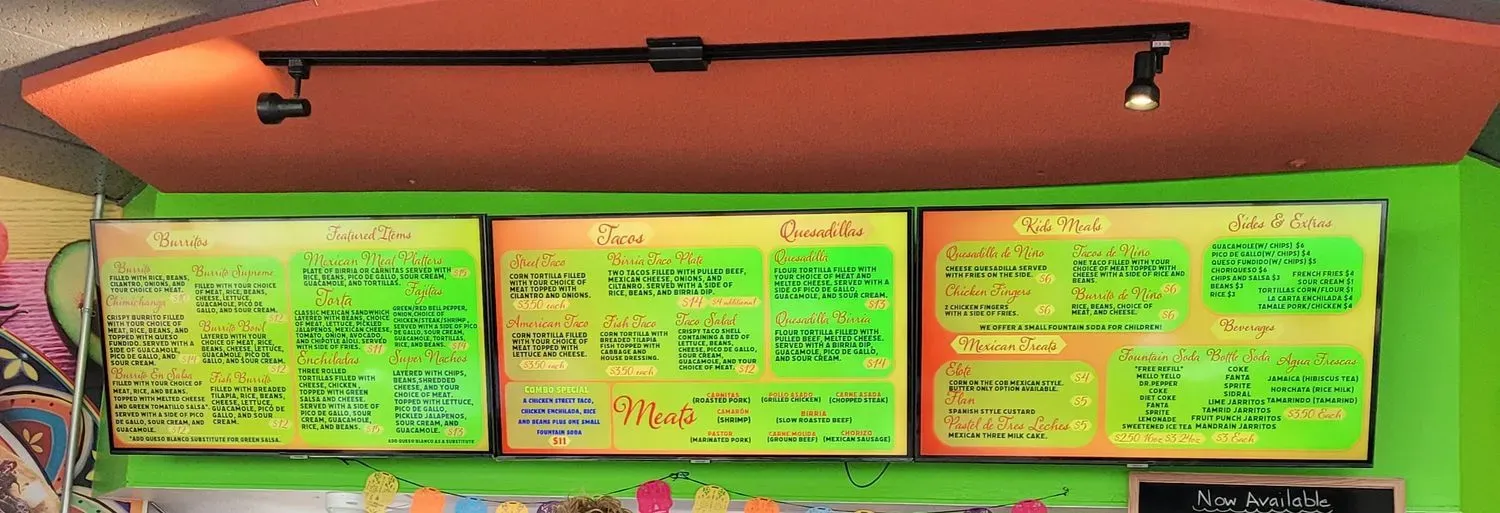 Burritos
Burrito
FILLED WITH RICE, BEANS,
CILANTRO, ONIONS, AND
YOUR CHOICE OF MEAT.
Chimichanga
CRISPY BURRITO FILLED
WITH YOUR CHOICE OF
MEAT, RICE, BEANS, AND
TOPPED WITH QUESO
FUNDIDO. SERVED WITH A
SIDE OF GUACAMOLE,
PICO DE GALLO, AND
SOUR CREAM.
$14
Burrito En Salsa
FILLED WITH YOUR CHOICE OF
MEAT, RICE, AND BEANS,
TOPPED WITH MELTED CHEESE
AND GREEN TOMATILLO SALSA*.
SERVED WITH A SIDE OF PICO
DE GALLO, SOUR CREAM, AND
GUACAMOLE.
$12
Burrito Supreme
FILLED WITH YOUR CHOICE OF
MEAT, RICE, BEANS,
CHEESE, LETTUCE,
GUACAMOLE, PICO DE
GALLO, AND SOUR CREAM.
$12
Burrito Bowl
LAYERED WITH YOUR
CHOICE OF MEAT, RICE,
BEANS, CHEESE, LETTUCE,
GUACAMOLE, PICO DE
GALLO, AND SOUR CREAM.
$12
Fish Burrito
FILLED WITH BREADED
TILAPIA, RICE, BEANS,
CHEESE, LETTUCE,
GUACAMOLE, PICO DE
GALLO, AND SOUR
CREAM.
$12
*ADD QUESO BLANCO SUBSTITUTE FOR GREEN SALSA.
Featured Items
Mexican Meat Platters
PLATE OF BIRRIA OR CARNITAS SERVED WITH
RICE, BEANS, PICO DE GALLO, SOUR CREAM,
GUACAMOLE, AND TORTILLAS.
$15
Torta
CLASSIC MEXICAN SANDWICH
LAYERED WITH BEANS, CHOICE
OF MEAT, LETTUCE, PICKLED
JALAPENOS, MEXICAN CHEESE,
TOMATO, ONION, AVOCADO,
AND CHIPOTLE AIOLI. SERVED
WITH SIDE OF FRIES.
$11
Fajitas
GREEN/RED BELL PEPPER,
ONION, CHOICE OF
CHICKEN/STEAK/SHRIMP,
SERVED WITH A SIDE OF PICO
DE GALLO, SOUR CREAM,
GUACAMOLE, TORTILLAS,
RICE, AND BEANS.
Enchiladas
THREE ROLLED
TORTILLAS FILLED WITH
CHEESE, CHICKEN,
TOPPED WITH GREEN
SALSA AND CHEESE.
SERVED WITH A SIDE OF
PICO DE GALLO, SOUR
CREAM, GUACAMOLE,
RICE, AND BEANS.
$15
Super Nachos
LAYERED WITH CHIPS,
BEANS, SHREDDED
CHEESE, AND YOUR
CHOICE OF MEAT,
TOPPED WITH LETTUCE,
PICO DE GALLO,
PICKLED JALAPENOS,
SOUR CREAM, AND
GUACAMOLE.
$13
ADD QUESO BLANCO AS A SUBSTITUTE
Tacos
Street Taco
CORN TORTILLA FILLED
WITH YOUR CHOICE OF
MEAT TOPPED WITH
CILANTRO AND ONIONS.
$3.50 each
Birria Taco Plate
TWO TACOS FILLED WITH PULLED BEEF,
MEXICAN CHEESE, ONIONS, AND
CILTANRO. SERVED WITH A SIDE OF
RICE, BEANS, AND BIRRIA DIP.
$14
$4 additional
American Taco
CORN TORTILLA FILLED
WITH YOUR CHOICE OF
MEAT TOPPED WITH
LETTUCE AND CHEESE.
$3.50 each
Fish Taco
CORN TORTILLA WITH
BREADED TILAPIA
FISH TOPPED WITH
CABBAGE AND
HOUSE DRESSING.
$3.50 each
Taco Salad
CRISPY TACO SHELL
CONTAINING A BED OF
LETTUCE, BEANS,
CHEESE, PICO DE GALLO,
SOUR CREAM,
GUACAMOLE, AND YOUR
CHOICE OF MEAT.
$12
Quesadillas
Quesadilla
FLOUR TORTILLA FILLED WITH
YOUR CHOICE OF MEAT AND
MELTED CHEESE, SERVED WITH A
SIDE OF PICO DE GALLO,
GUACAMOLE, AND SOUR CREAM.
$13
Quesadilla Birria
FLOUR TORTILLA FILLED WITH
PULLED BEEF, MELTED CHEESE.
SERVED WITH A BIRRIA DIP,
GUACAMOLE, PICO DE GALLO,
AND SOUR CREAM.
$14
COMBO SPECIAL
A CHICKEN STREET TACO,
CHICKEN ENCHILADA, RICE
AND BEANS PLUS ONE SMALL
FOUNTAIN SODA
$11
Meats
CARNITAS
(ROASTED PORK)
POLLO ASADO
(GRILLED CHICKEN)
CARNE ASADA
(CHOPPED STEAK)
CAMARÓN
(SHRIMP)
BIRRIA
(SLOW ROASTED BEEF)
PASTOR
(MARINATED PORK)
CARNE MOLIDA
(GROUND BEEF)
CHORIZO
(MEXICAN SAUSAGE)
Kids Meals
Quesadilla de Nino
CHEESE QUESADILLA SERVED
WITH FRIES ON THE SIDE.
$6
Chicken Fingers
2 CHICKEN FINGERS
WITH A SIDE OF FRIES.
$6
Tacos de Nino
ONE TACO FILLED WITH YOUR
CHOICE OF MEAT TOPPED WITH
CHEESE WITH A SIDE OF RICE AND
BEANS.
$6
Burrito de Nino
RICE, BEANS, CHOICE OF
MEAT, AND CHEESE.
$6
WE OFFER A SMALL FOUNTAIN SODA FOR CHILDREN!
Mexican Treats
Elote
CORN ON THE COB MEXICAN STYLE.
BUTTER ONLY OPTION AVAILABLE.
$4
Flan
SPANISH STYLE CUSTARD
$5
Pastel de Tres Leches
$5
MEXICAN THREE MILK CAKE.
Sides & Extras
GUACAMOLE(W/ CHIPS) $6
PICO DE GALLO(W/ CHIPS) $4
QUESO FUNDIDO(W/ CHIPS) $5
CHORIQUESO $6
CHIPS AND SALSA $3
BEANS $3
RICE $3
FRENCH FRIES $4
SOUR CREAM $1
TORTILLAS CORN/FLOUR $1
LA CARTA ENCHILADA $4
TAMALE PORK/CHICKEN $4
Beverages
Fountain Soda
"FREE REFILL"
MELLO YELLO
DR.PEPPER
COKE
DIET COKE
FANTA
SPRITE
LEMONADE
SWEETENED ICE TEA
$2.50 16oz $3 24oz
Bottle Soda
COKE
FANTA
SPRITE
SIDRAL
LIME JARRITOS
TAMRID JARRITOS
FRUIT PUNCH JARRITOS
MANDRAIN JARRITOS
$3 Each
Agua Frescas
JAMAICA (HIBISCUS TEA)
HORCHATA (RICE MILK)
TAMARINDO (TAMARIND)
$3.50 Each
Now Available